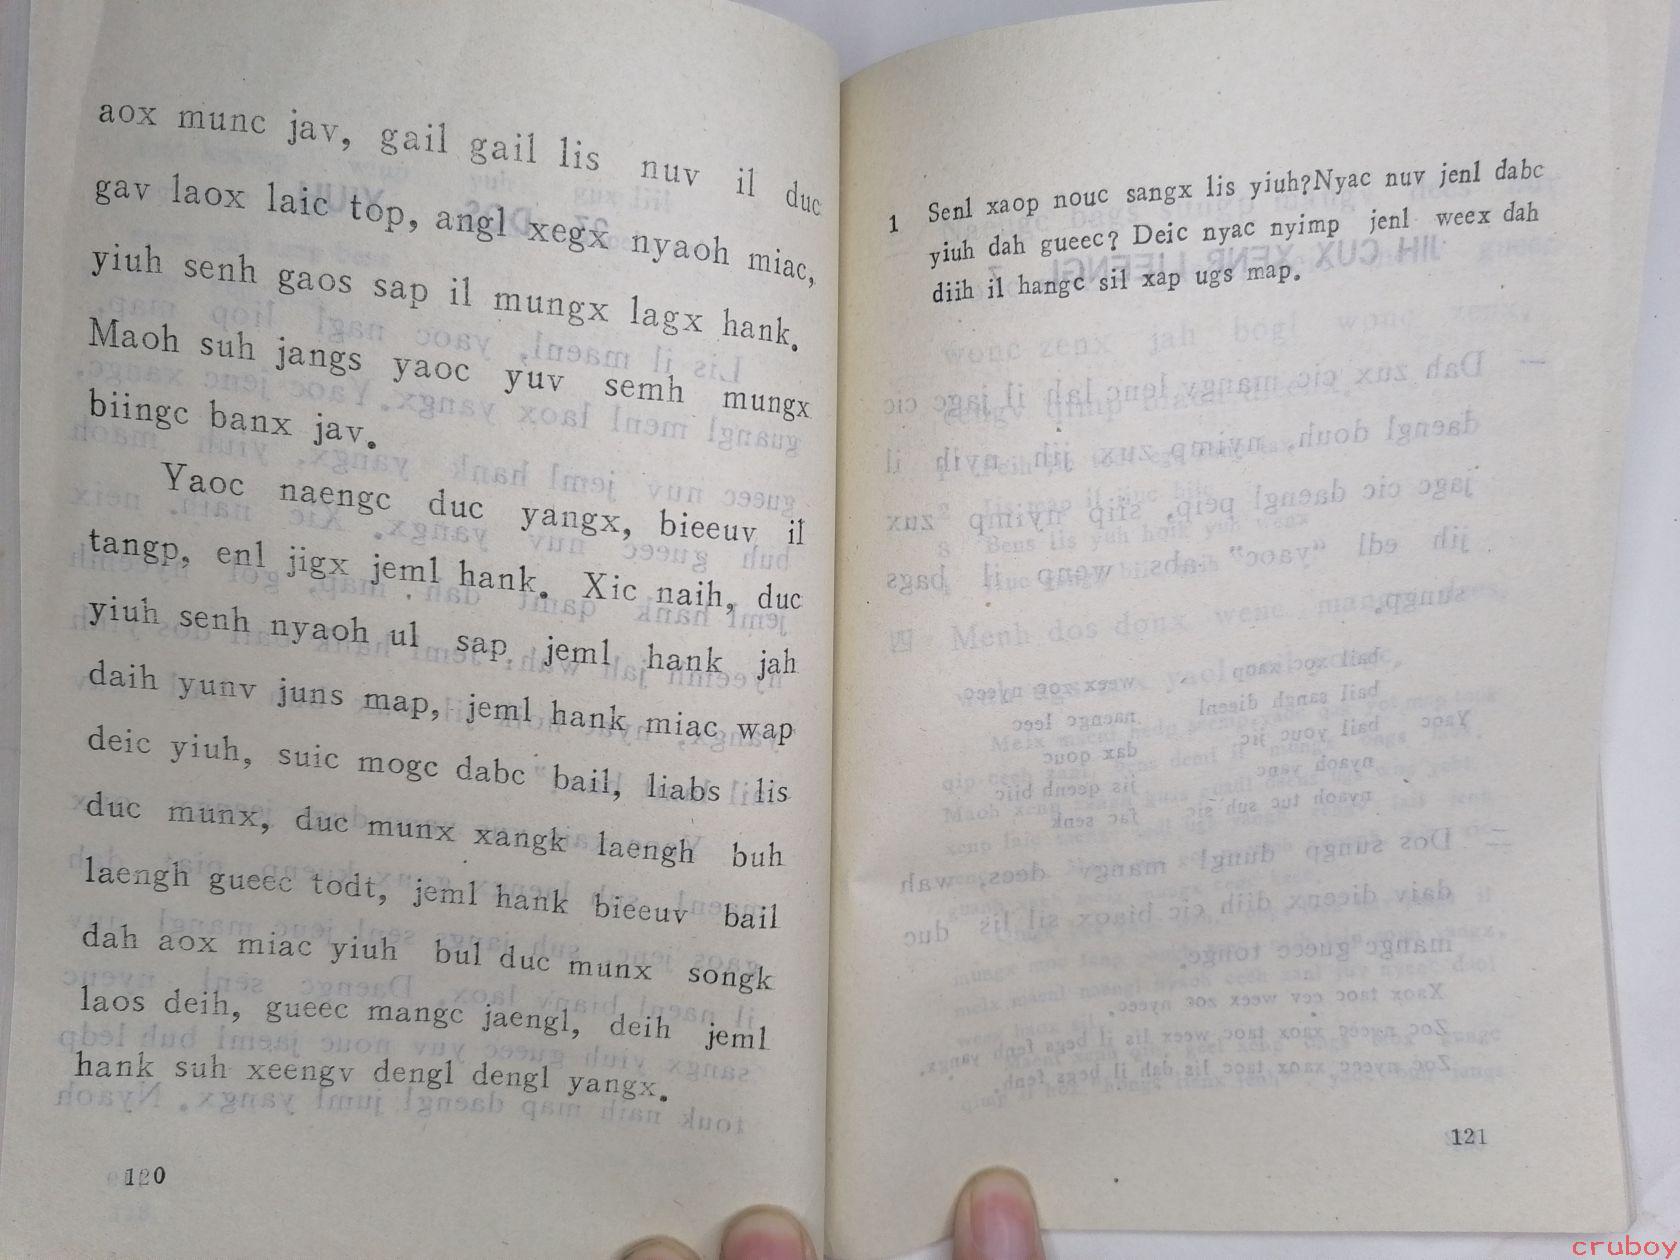 aox munc jav, gail gail lis nuv il duc
gav laox laic top, angl xegx nyaoh miac,
yiuh senh gaos sap il mungx lagx hank.
Maoh suh jangs yaoc yuv semh mungx
biingc banx jav.
Yaoc naengc duc yangx, bieeuv il
tangp, enl jigx jeml hank. Xic naih, duc
yiuh senh nyaoh ul sap, jeml hank jah
daih yunv juns map, jeml hank miac wap
deic yiuh, suic mogc dabc bail, liabs lis
duc munx, duc munx xangk laengh buh
laengh gueec todt, jeml hank bieeuv bail
dah aox miac yiuh bul duc munx songk
laos deih, gueec mangc jaengl, deih jeml
hank suh xeengv dengl dengl yangx.
120
1 Senl xaop nouc sangx lis yiuh?Nyac nuv jenl dabc
yiuh dah gueec? Deic nyac nyimp jenl weex dah
diih il hangc sil xap ugs map.
121
cruboy